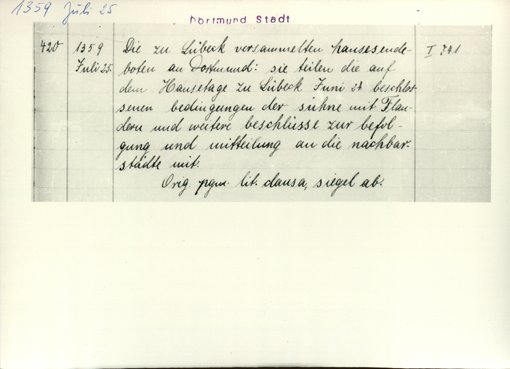 1359 Juli 25
Dortmund Stadt
420 1359 Die zu Lübeck versammelten hansesende- I 741
Juli 25. boten an Dortmund: sie teilen die auf
dem Hansetage zu Lübeck Juni 24 beschlos-
senen bedingungen der sühne mit Flan-
dern und weitere beschlüsse zur befol-
gung und mitteilung an die nachbar-
städte mit.
Orig. pgm. lit. clausa, siegel ab.